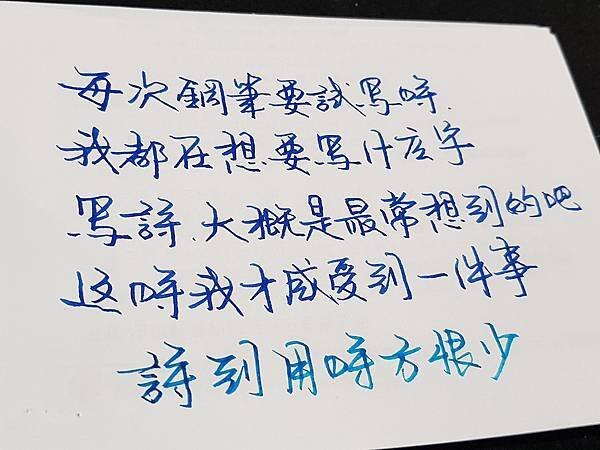 每次鋼筆要試写時,
我都在想要写什広字
写詩、大概是最常想到的吧
这時我才感受到一件事
詩到用時方恨少